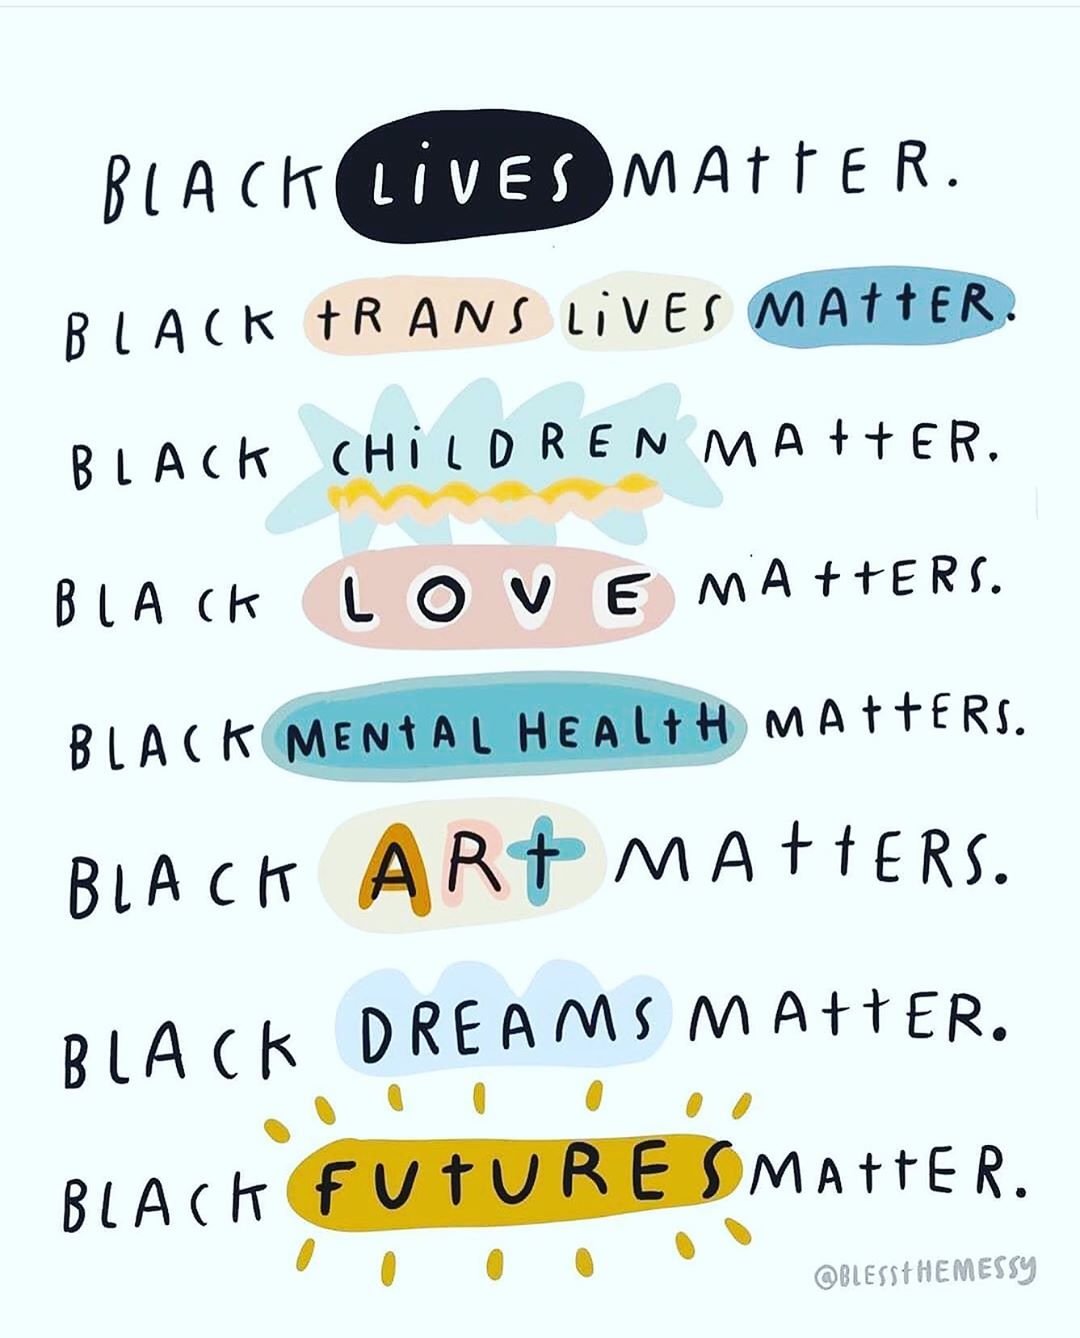 BLACK LiVES MAttER.
BLACK tRANS LiVES MAttER.
BLACK CHiLDREN MAttER.
BLACK LOVE MAttERS.
BLACK MENtAL HEALtH MAttERS.
BLACK ARt MAttERS.
BLACK DREAMS MAttER.
BLACK FUtURES MAttER.
@BLESStHEMESSY